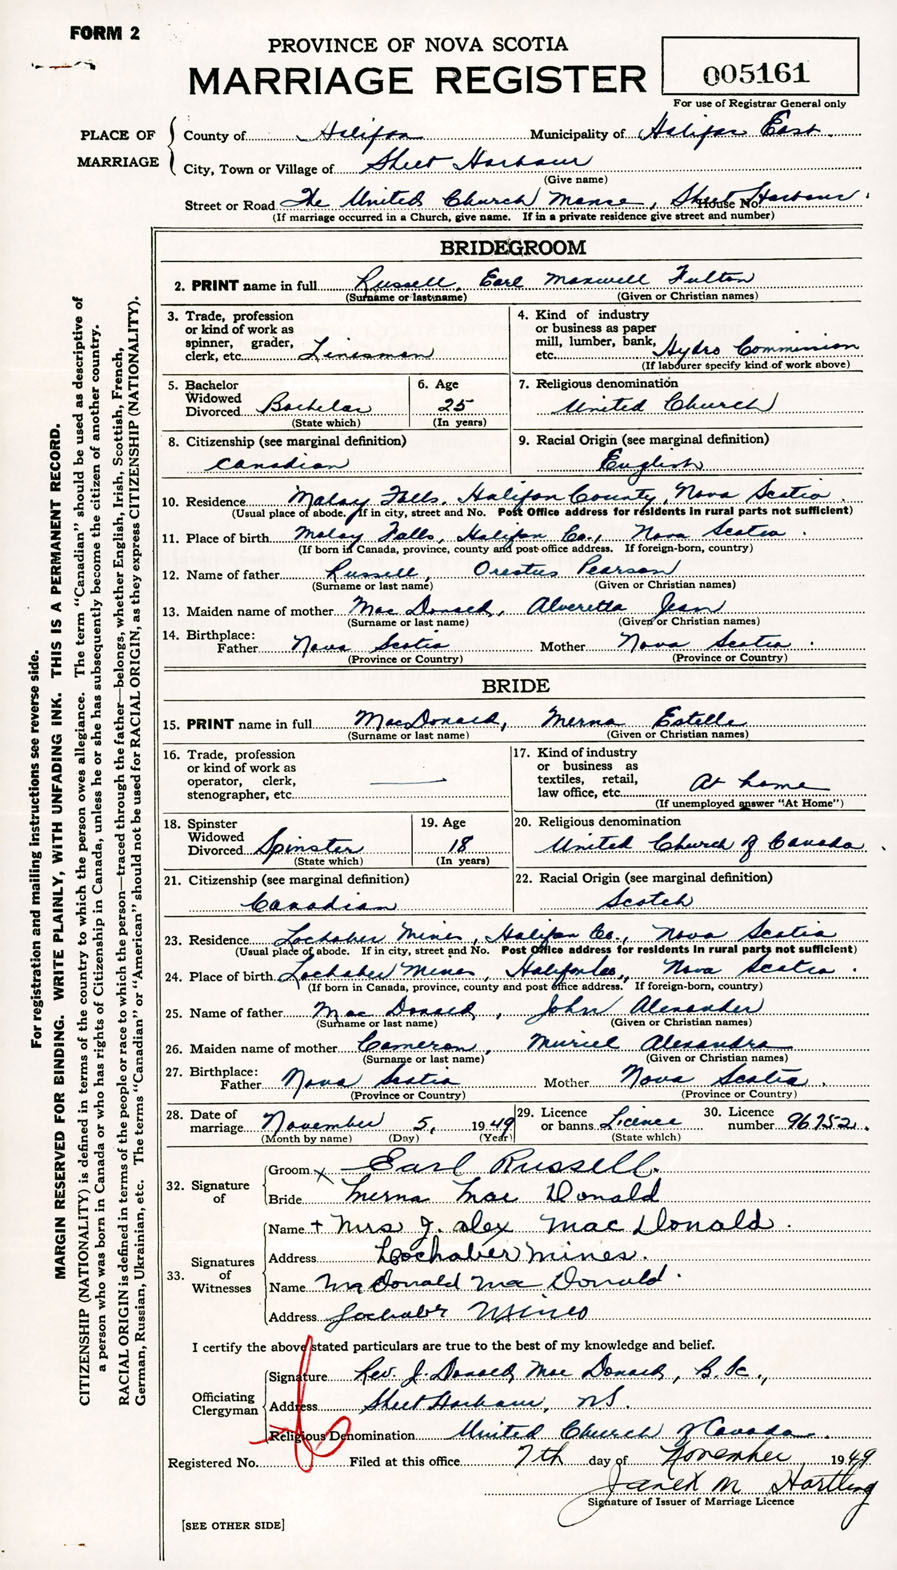 FORM 2
PROVINCE OF NOVA SCOTIA
MARRIAGE REGISTER
005161
For use of Registrar General only
PLACE OF MARRIAGE
County of Halifax Municipality of Halifax East
City, Town or Village of Sheet Harbour
(Give name)
Street or Road The United Church Manse, Sheet Harbour House No.
(If marriage occurred in a Church, give name. If in a private residence give street and number)
BRIDEGROOM
2. PRINT name in full Russell, Earl Maxwell Fulton
(Surname or last name) (Given or Christian names)
3. Trade, profession or kind of work as spinner, grader, clerk, etc. Linesman
4. Kind of industry or business as paper mill, lumber, bank, etc. Hydro Commission
(If labourer specify kind of work above)
5. Bachelor Widowed Divorced Bachelor
(State which)
6. Age 25
(In years)
7. Religious denomination
United Church
8. Citizenship (see marginal definition)
Canadian
9. Racial Origin (see marginal definition)
English
10. Residence Malay Falls, Halifax County, Nova Scotia
(Usual place of abode. If in city, street and No. Post Office address for residents in rural parts not sufficient)
11. Place of birth Malay Falls, Halifax Co., Nova Scotia.
(If born in Canada, province, county and post office address. If foreign-born, country)
12. Name of father Russell, Orestus Pearson
(Surname or last name) (Given or Christian names)
13. Maiden name of mother MacDonald, Alveretta Jean
(Surname or last name) (Given or Christian names)
14. Birthplace:
Father Nova Scotia Mother Nova Scotia.
(Province or Country) (Province or Country)
BRIDE
15. PRINT name in full MacDonald, Merna Estella
(Surname or last name) (Given or Christian names)
16. Trade, profession or kind of work as operator, clerk, stenographer, etc.
17. Kind of industry or business as textiles, retail, law office, etc. At home
(If unemployed answer "At Home")
18. Spinster Widowed Divorced Spinster
(State which)
19. Age 18
(In years)
20. Religious denomination
United Church of Canada
21. Citizenship (see marginal definition)
Canadian
22. Racial Origin (see marginal definition)
Scotch
23. Residence Lochaber Mines, Halifax Co., Nova Scotia
(Usual place of abode. If in city, street and No. Post Office address for residents in rural parts not sufficient)
24. Place of birth Lochaber Mines, Halifax Co., Nova Scotia.
(If born in Canada, province, county and post office address. If foreign-born, country)
25. Name of father MacDonald, John Alexander
(Surname or last name) (Given or Christian names)
26. Maiden name of mother Cameron, Muriel Alexandra
(Surname or last name) (Given or Christian names)
27. Birthplace:
Father Nova Scotia Mother Nova Scotia.
(Province or Country) (Province or Country)
28. Date of marriage November 5, 1949
(Month by name) (Day) (Year)
29. Licence or banns Licence
(State which)
30. Licence number 96752.
32. Signature of
Groom x Earl Russell.
Bride Merna MacDonald
33. Signatures of Witnesses
Name + Mrs J. Alex MacDonald.
Address Lochaber Mines.
Name McDonald MacDonald.
Address Lochaber Mines
I certify the above stated particulars are true to the best of my knowledge and belief.
Officiating Clergyman
Signature Rev. J. Donald MacDonald, B. Sc.,
Address Sheet Harbour, NS.
Religious Denomination United Church of Canada.
Registered No. Filed at this office 7th day of November 1949
Janet M Hartling
Signature of Issuer of Marriage Licence
[SEE OTHER SIDE]
For registration and mailing instructions see reverse side.
MARGIN RESERVED FOR BINDING. WRITE PLAINLY, WITH UNFADING INK. THIS IS A PERMANENT RECORD.
CITIZENSHIP (NATIONALITY) is defined in terms of the country to which the person owes allegiance. The term "Canadian" should be used as descriptive of
a person who was born in Canada or who has rights of Citizenship in Canada, unless he or she has subsequently become the citizen of another country.
RACIAL ORIGIN is defined in terms of the people or race to which the person—traced through the father—belongs, whether English, Irish, Scottish, French,
German, Russian, Ukrainian, etc. The terms "Canadian" or "American" should not be used for RACIAL ORIGIN, as they express CITIZENSHIP (NATIONALITY).